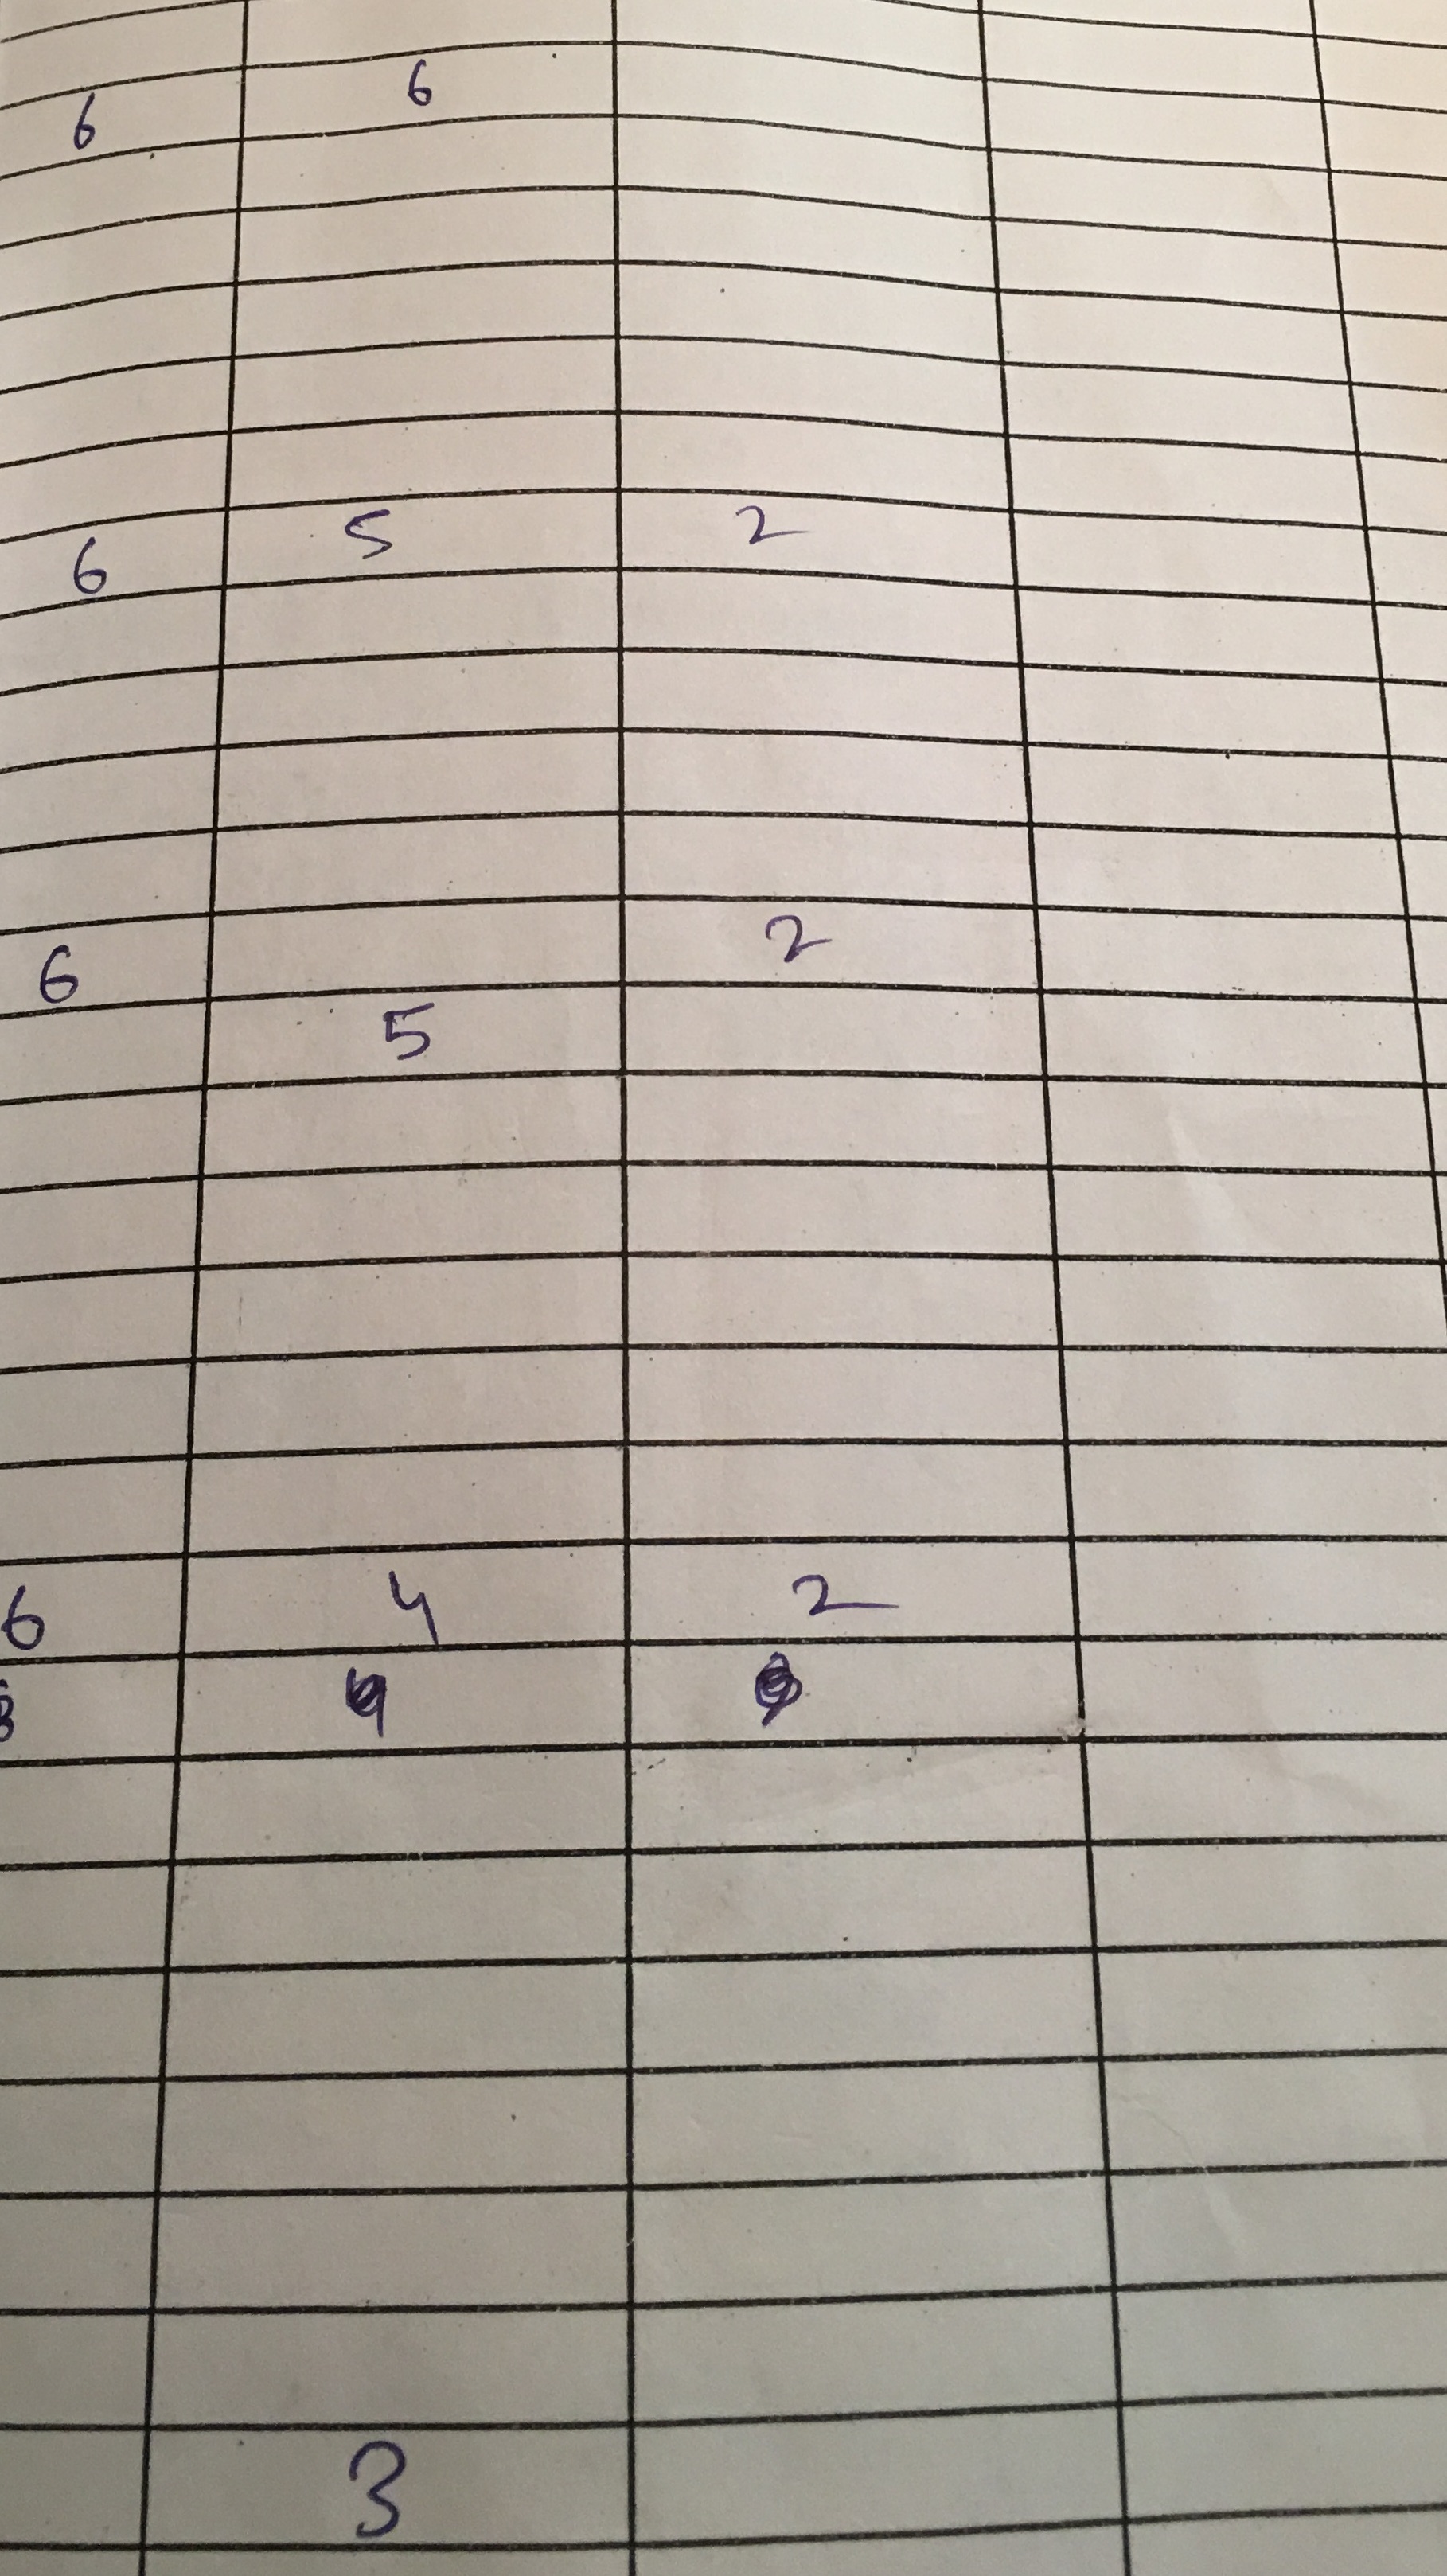 6 6
6 5 2
6 2
5
6 4 2
9
3